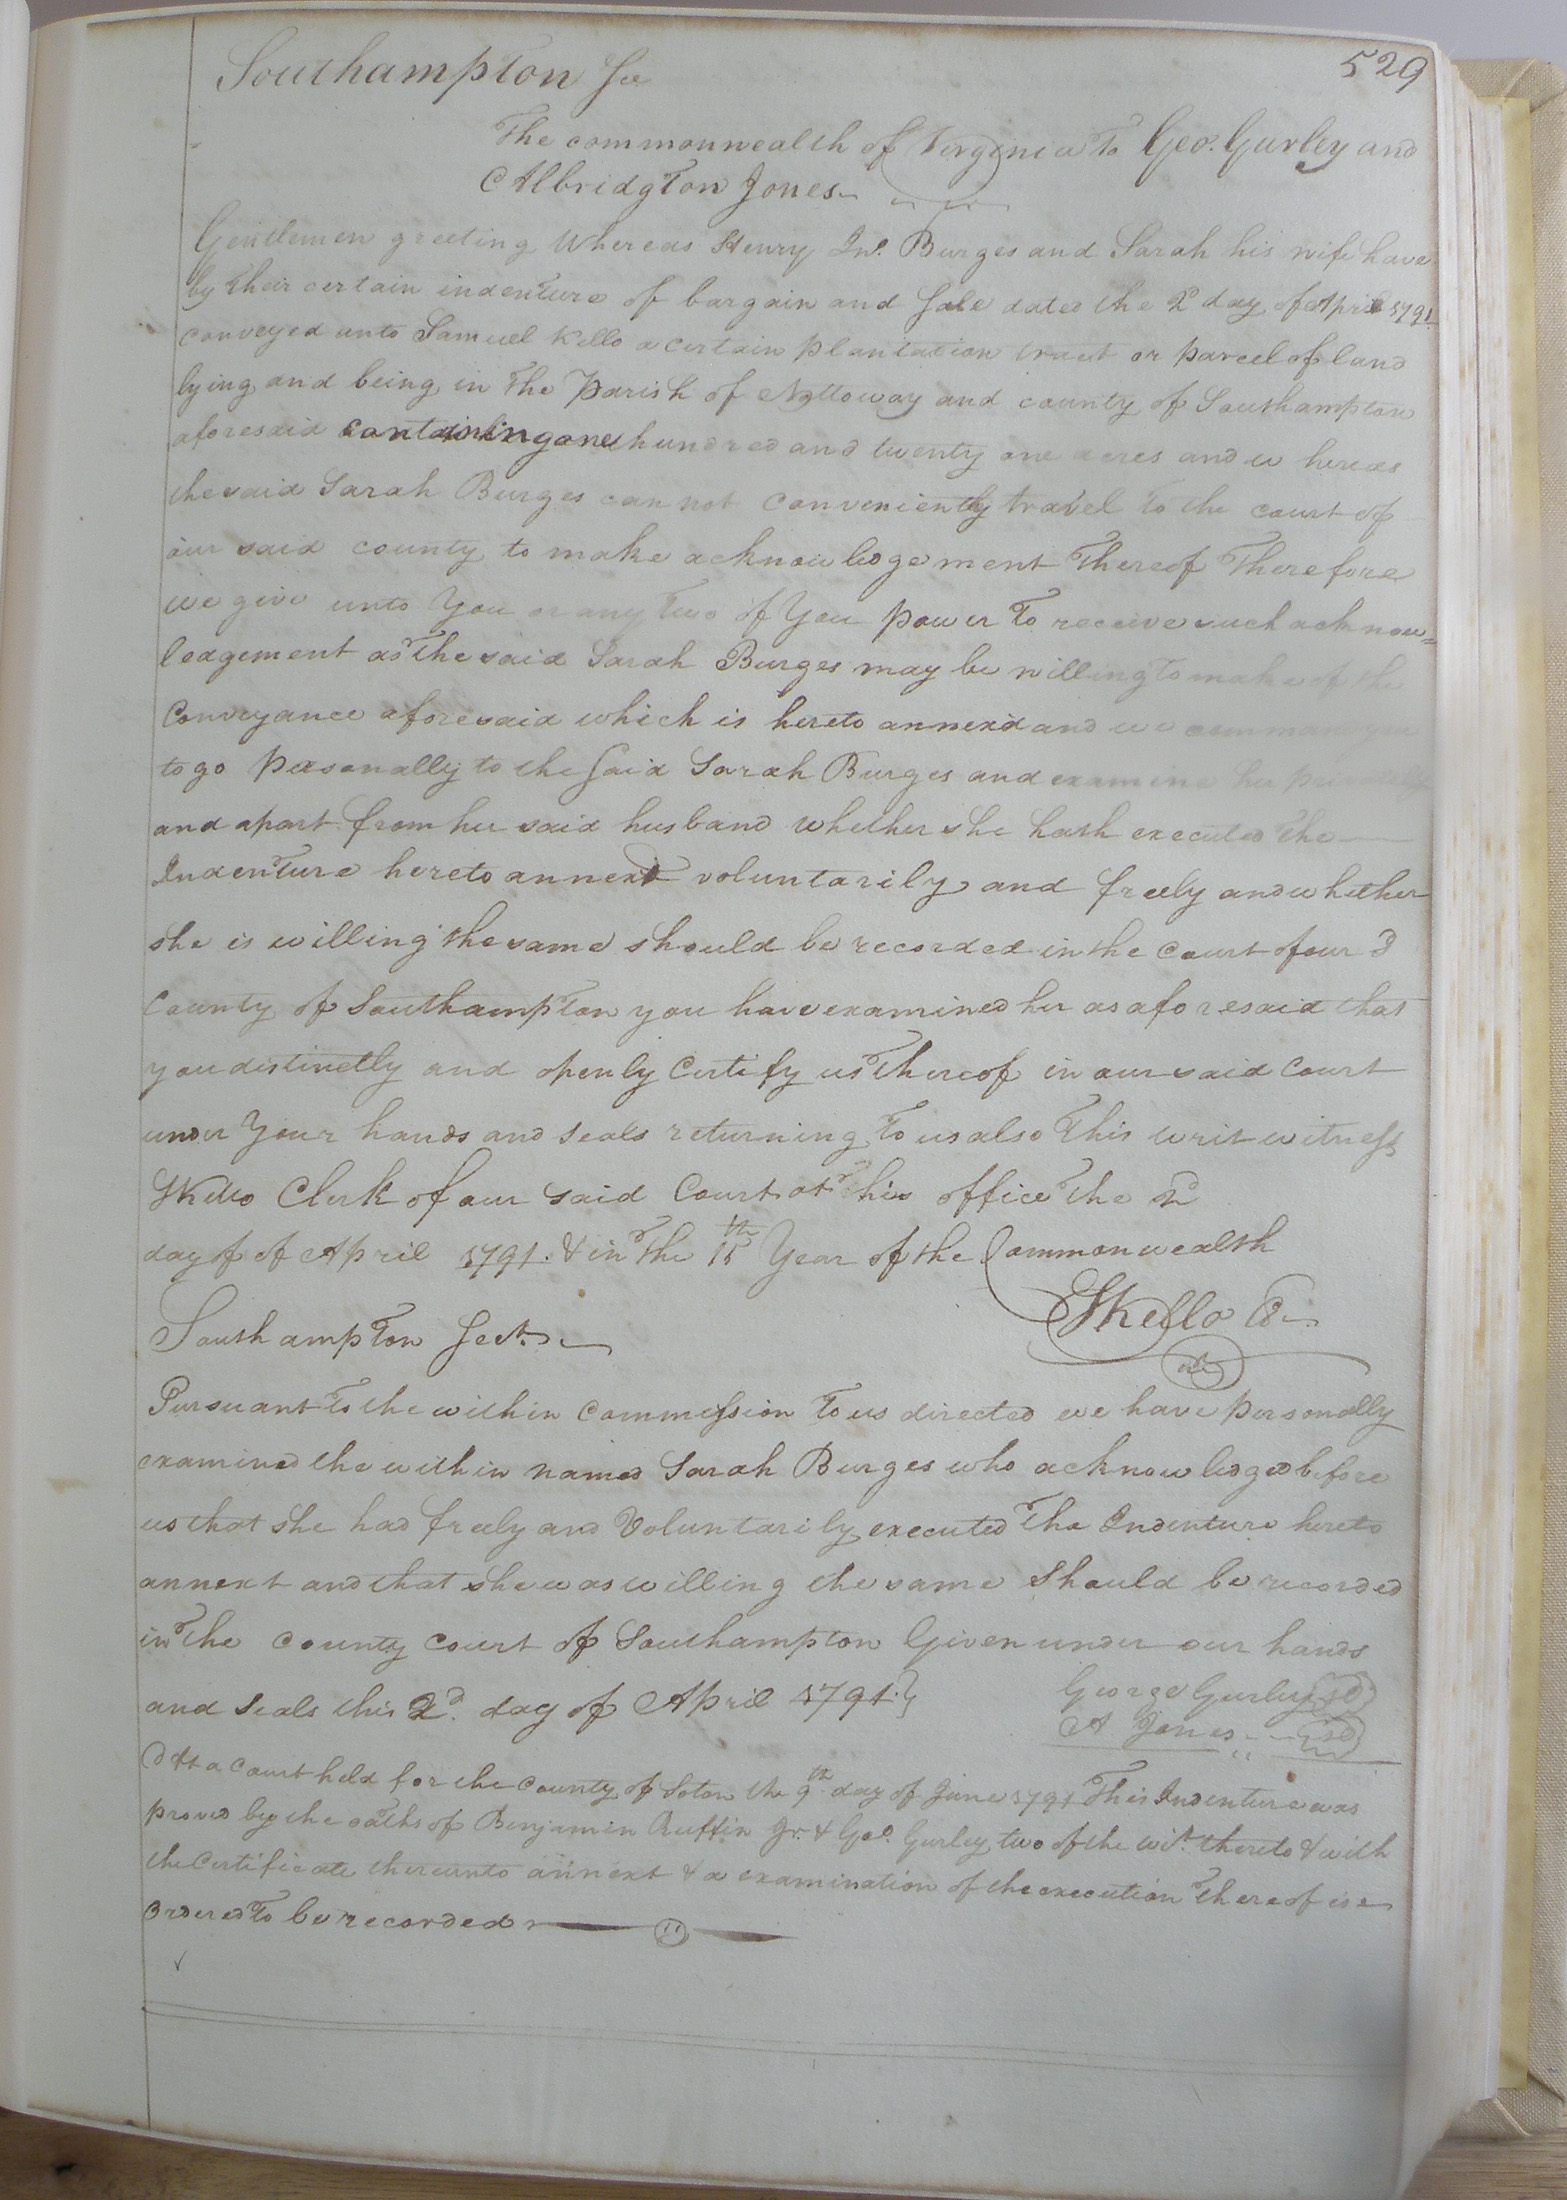 529
Southampton Sc
The commonwealth of Virginia To Geo. Gurley and
Albridgton Jones
Gentlemen greeting Whereas Henry Jno. Burges and Sarah his wife have
by Their certain indenture of bargain and Sale dated the 2d day of April 1791
conveyed unto Samuel Kello a certain plantation tract or parcel of land
lying and being in The Parish of Nottoway and county of Southampton
aforesaid containing one hundred and twenty one acres and whereas
the said Sarah Burges can not conveniently travel To the court of
our said county to make acknowledgement Thereof Therefore
we give unto You or any Two of You power To receive such acknow=
ledgement as The said Sarah Burges may be willing to make of the
Conveyance aforesaid which is hereto annexd and we command you
to go Personally to the Said Sarah Burges and examine her privately
and apart from her said husband whether she hath executed The
Indenture hereto annext voluntarily and freely and whether
she is willing the same should be recorded in the Court of our
County of Southampton you have examined her as aforesaid that
you distinctly and openly Certify us Thereof in our said Court
under Your hands and seals returning To us also This writ witness
SKello Clerk of our Said Court at his office The 2d
day of of April 1791. & in The 15th Year of the Commonwealth
SKello C
Southampton Sect.
Pursuant To the within commission To us directed we have personally
examined the within named Sarah Burges who acknowledged before
us that she had freely and Voluntarily executed The Indenture hereto
annext and that she was willing the same Should be recorded
in The County Court of Southampton Given under our hands
and Seals this 2d. day of April 1791.
George Gurley sd
A Jones sd
At a Court held for the County of Soton the 9th day of June 1791 This Indenture was
proved by the oaths of Benjamin Ruffin Jr. & Geo. Gurley two of the wits. thereto & with
the Certificate thereunto annext & a examination of the execution Thereof is
Ordered To be recorded